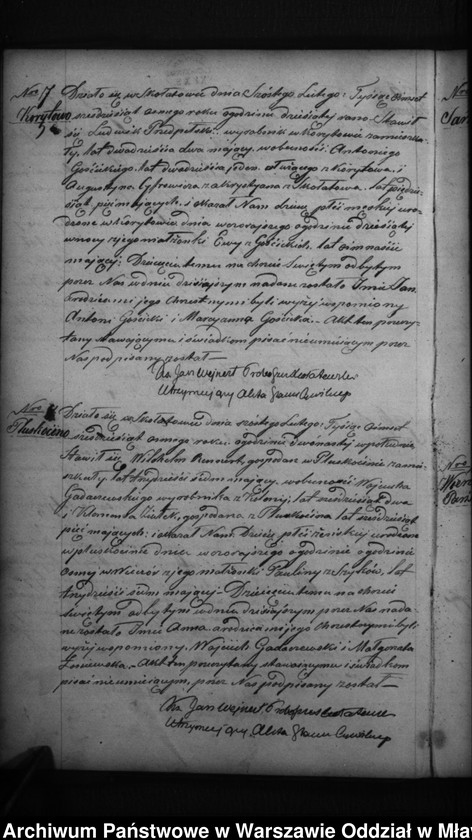 Nro 7
Korytowo
Działo się w Skołatowie dnia Szóstego Lutego, Tysiąc ośmset
sześćdziesiąt ósmego roku o godzinie dziesiątej rano. Stawił
się Ludwik wyrobnik w Korytowie zamiesz-
kały, lat dwadzieścia dwa mający, w obecności Antoniego
Gościckiego, lat dwadzieścia siedem z Korytowa, i
Augustyna zakrystyana z Skołatowa, lat pięćdzie-
siąt pięć mających, i okazał Nam dziecię płci męzkiej uro-
dzone w Korytowie, dnia wczorajszego o godzinie dziesiątej
w nocy z jego małżonki Ewy z Gościckich, lat
mającej; Dziecięciu temu na chrzcie Świętym odbytym
przez Nas w dniu dzisiejszym nadane zostało Imie Jan,
a rodzicami jego Chrzestnymi byli wyżej wspomniony
Antoni Gościcki i Maryanna Gościcka. Akt ten przeczy-
tany stawającymu i świadkom pisać nieumiejącym przez
Nas podpisany został
Ks. Jan Wejnert
Utrzymujący Akta Stanu Cywilnego
Nro 8
Pluskocino
Działo się w Skołatowie dnia szóstego Lutego, Tysiąc ośmset
sześćdziesiąt ósmego roku, o godzinie dwunastej w południe
Stawił się Wilhelm gospodarz w Pluskocinie zamie-
szkały, lat trzydzieści siedm mający, w obecności Wojciecha
Gadaczewskiego wyrobnika z lat sześćdziesiąt dwa
i Klemensa gospodarza z Pluskocina lat sześćdziesiąt
pięć mających; i okazał Nam Dziecię płci żeńskiej urodzone
w Pluskocinie dnia wczorajszego o godzinie
ósmej w wieczór z jego małżonki Pauliny z lat
trzydzieści siedm mającej. Dziecięciu temu na chrzcie
świętym odbytym w dniu dzisiejszym przez Nas nada-
ne zostało Imie Anna, a rodzicami jego Chrzestnymi byli
wyżej wspomniony Wojciech Gadaczewski i Małgorzata
Akt ten przeczytany stawającymu i świadkom
pisać nieumiejącym, przez Nas podpisany został
Ks. Jan Wejnert
Utrzymujący Akta Stanu Cywilnego
Nro
Nro
Archiwum Państwowe w Warszawie Oddział w Mła